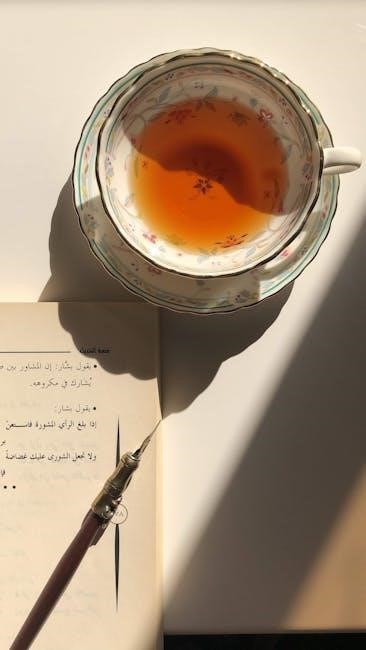 متعة الحديث
• يقول بشّار: إن المشاور بين
يُشارك في مكروهه.
• يقول بشار:
إذا بلغ الرأي المشورة فاستعن
ولا تجعل الشورى عليك غضاضةً